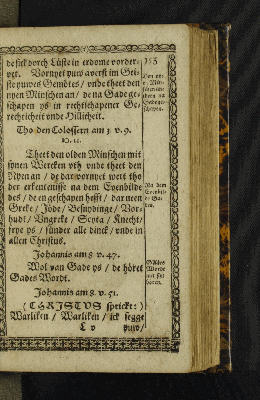 de sick dorch Lüste in erdome vorder-
vet. Vornyet yuw auerst im Gei-
ste yuwes Gemötes / vnde theet den
nyen Minschen an / de na Gade ge-
schapen ys in rechtschapener Ge-
rechticheit vnde Hillicheit.
Tho den Colossern am 3. v. 9.
10. 11.
Theet den olden Minschen mit
synen Wercken vth vnde theet den
Nyen an / de dar vornyet wert tho
der erkentenisse na dem Euenbilde
des / de en geschapen hefft / dar neen
Greke / Jöde / Besnydinge / Vor-
hudt / Vngreke / Scyta / Knecht /
frye ys / sünder alle dinck / vnde in
allen Christus.
Johannis am 8. v. 47.
Wol van Gade ys / de höret
Gades Wordt.
Johannis am 8. v. 51.
(CHRISTVS sprickt:)
Warliken / Warliken / ick segge
L v
yuw /
153
Na dem
Euenbil-
Gades
Wordt